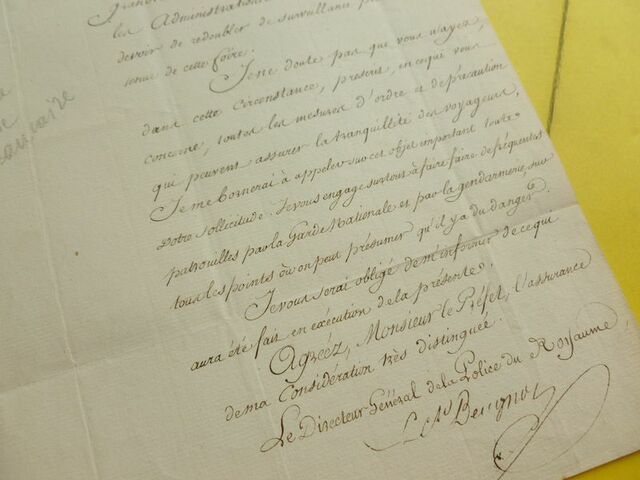 les Administrations
devoir de redoubler de surveillance
tenue de cette foire.
Je ne doute pas que vous n'ayez,
dans cette circonstance, prescrit, en ce qui vous
concerne, toutes les mesures d'ordre et de précaution
qui peuvent assurer la tranquillité des voyageurs,
Je me bornerai à appeler sur cet objet important toute
Votre sollicitude. Je vous engage surtout à faire faire de fréquentes
patrouilles par la Garde Nationale et par la gendarmerie, sur
tous les points où on peut présumer qu'il y a du danger.
Je vous serai obligé de m'informer de ce qui
aura été fait en exécution de la présente.
Agréez, Monsieur le Préfet, l'assurance
de ma Considération très distinguée.
Le Directeur Général de la Police du Royaume,
Beugnot